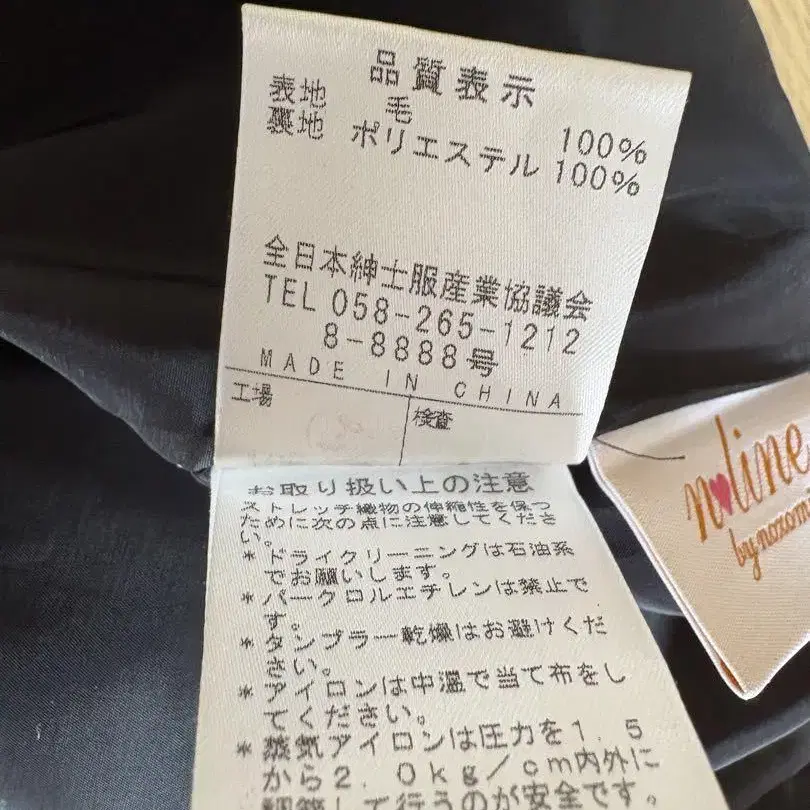 品質表示
表地 毛 100%
裏地 ポリエステル 100%
全日本紳士服産業協議会
TEL 058-265-1212
8-8888号
MADE IN CHINA
工場
検査
お取り扱い上の注意
ストレッチ織物の伸縮性を保つ
ために次の点に注意してくださ
い。
*ドライクリーニングは石油系
でお願いします。
*パークロルエチレンは禁止で
す。
*タンブラー乾燥はお避けくだ
さい。
*アイロンは中温で当て布をし
てください。
*蒸気アイロンは圧力を1.5
から2.0kg/cm内外に
調節して行うのが安全です。
n♥line
by nozomi